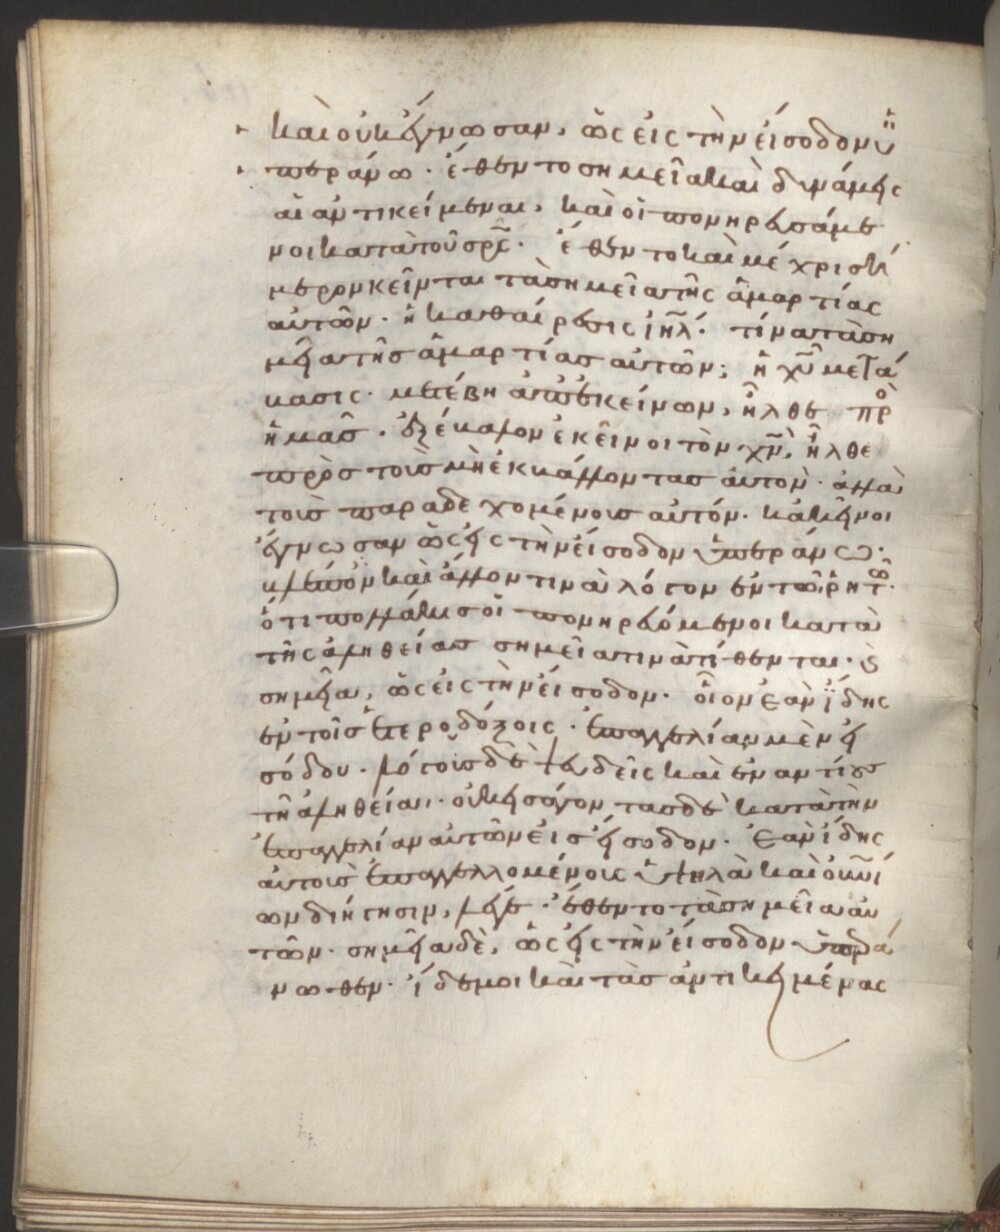 καὶ οὐκ ἔγνωσαν, ὡς εἰς τὴν εἴσοδον ὑ
περάνω. ἔθεντο σημεῖα καὶ δυνάμεις
αἱ ἀντικείμεναι, καὶ οἱ πονηρευσάμε
νοι κατὰ τοῦ σρ̅ς. ἔθεντο καὶ μέχρι σή
μερον κεῖνται τὰ σημεῖα τῆς ἁμαρτίας
αὐτῶν. ἡ καθαίρεσις ἰη̅λ. τίνα τὰ ση
μεῖα τῆς ἁμαρτίας αὐτῶν; ἡ χυ̅ μετά
βασις. μετέβη ἀπ' ἐκείνων, ἦλθε πρὸ
ἡμᾶς. ἐξέβαλον ἐκεῖνοι τὸν χν̅, ἦλθε
πρὸς τοὺς μὴ ἐκβάλλοντας αὐτὸν. ἀλλὰ
τοὺς παραδεχομένους αὐτόν. κἀκεῖνοι
ἔγνωσαν ὡς εἰς τὴν εἴσοδον ὑπεράνω.
βλέπον καὶ ἄλλον τινὰ λόγον ἐν τῶ ῥητῶ.
ὅτι πολλάκις οἱ πονηρευόμενοι κατὰ
τῆς ἀληθείας σημεῖα τινὰ τίθενται. ϛ̀
σημεῖα, ὡς εἰς τὴν εἴσοδον. οἷον ἐὰν ἴδης
ἐν τοῖς ἑτεροδόξοις. ἐπαγγελίαν μὲν εἰ
σόδου. λόγους δὲ ψευδεῖς καὶ ἐναντίους
τῆ ἀληθεία. οὐκ εἰσάγοντας δὲ κατὰ τὴν
ἐπαγγελίαν αὐτῶν εἰς εἴσοδον. ἐὰν ἴδης
αὐτοὺς ἐπαγγελλομένους ὑψηλὰ καὶ οὐν̅ί
ων διήγησιν, λέγε. ἔθεντο τὰ σημεῖα αὐ
τῶν. σημεῖα δὲ, ὡς εἰς τὴν εἴσοδον ὑπερά
νωθεν. ἴδε μοι καὶ τὰς ἀντικειμένας